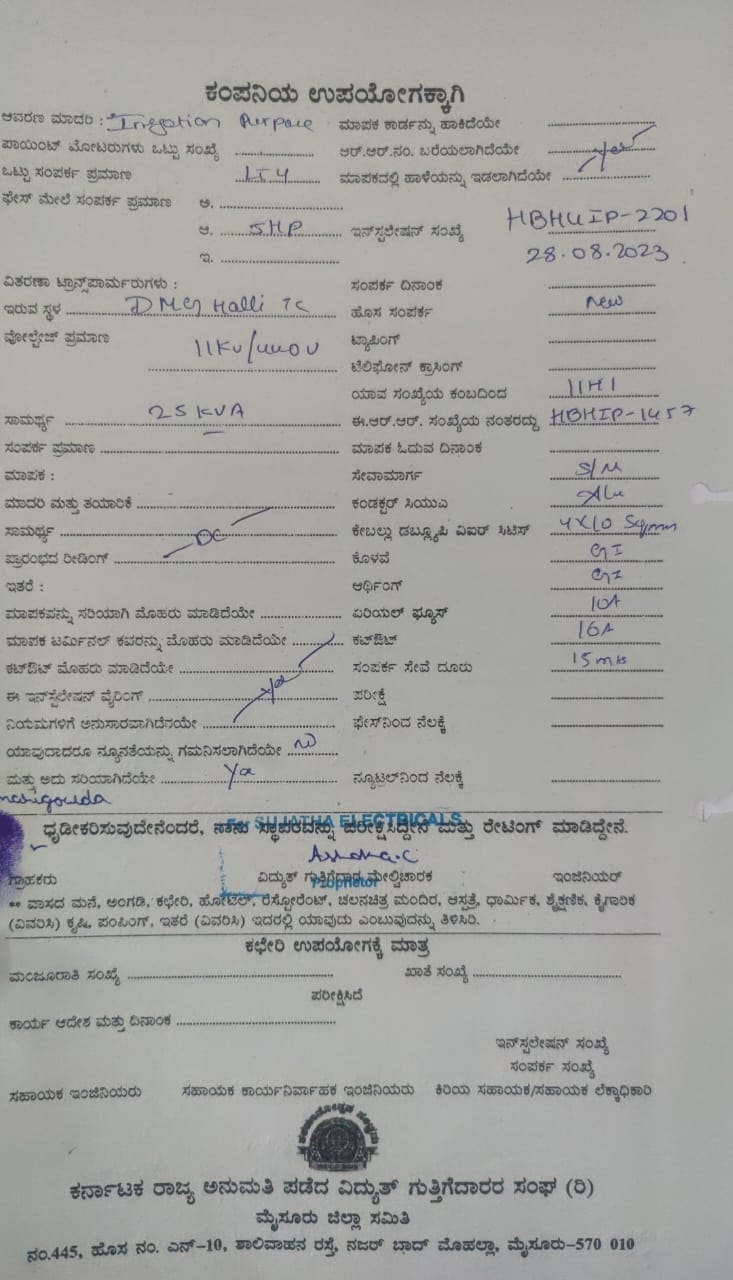 ಕಂಪನಿಯ ಉಪಯೋಗಕ್ಕಾಗಿ
ಆವರಣ ಮಾದರಿ : Irregation Purpose ಮಾಪಕ ಕಾರ್ಡನ್ನು ಹಾಕಿದೆಯೇ
ಪಾಯಿಂಟ್ ಮೋಟರುಗಳು ಒಟ್ಟು ಸಂಖ್ಯೆ ಆರ್.ಆರ್.ನಂ. ಬರೆಯಲಾಗಿದೆಯೇ
ಒಟ್ಟು ಸಂಪರ್ಕ ಪ್ರಮಾಣ LT4 ಮಾಪಕದಲ್ಲಿ ಹಾಳೆಯನ್ನು ಇಡಲಾಗಿದೆಯೇ Yes
ಫೇಸ್ ಮೇಲೆ ಸಂಪರ್ಕ ಪ್ರಮಾಣ ಅ.
ಆ. 5HP ಇನ್‌ಸ್ಟಲೇಷನ್ ಸಂಖ್ಯೆ HBHUIP-2201
ಇ. 28.08.2023
ವಿತರಣಾ ಟ್ರಾನ್ಸ್‌ಪಾರ್ಮರುಗಳು : ಸಂಪರ್ಕ ದಿನಾಂಕ
ಇರುವ ಸ್ಥಳ DMG Halli TC ಹೊಸ ಸಂಪರ್ಕ New
ವೋಲ್ಟೇಜ್ ಪ್ರಮಾಣ 11KV/440V ಟ್ಯಾಪಿಂಗ್
ಟೆಲಿಫೋನ್ ಕ್ರಾಸಿಂಗ್
ಯಾವ ಸಂಖ್ಯೆಯ ಕಂಬದಿಂದ 11H1
ಸಾಮರ್ಥ್ಯ 25 KVA ಈ.ಆರ್.ಆರ್. ಸಂಖ್ಯೆಯ ನಂತರದ್ದು HBHIP-1457
ಸಂಪರ್ಕ ಪ್ರಮಾಣ ಮಾಪಕ ಓದುವ ದಿನಾಂಕ
ಮಾಪಕ : ಸೇವಾಮಾರ್ಗ S/M
ಮಾದರಿ ಮತ್ತು ತಯಾರಿಕೆ ಕಂಡಕ್ಟರ್ ಸಿಯುಎ Alu
ಸಾಮರ್ಥ್ಯ DC ಕೇಬಲ್ಲು ಡಬ್ಲ್ಯೂಪಿ ವಿಐರ್ ಸಿಟಿಸ್ 4X10 Sqmm
ಪ್ರಾರಂಭದ ರೀಡಿಂಗ್ ಕೊಳವೆ GI
ಇತರೆ : ಆರ್ಥಿಂಗ್ GI
ಮಾಪಕವನ್ನು ಸರಿಯಾಗಿ ಮೊಹರು ಮಾಡಿದೆಯೇ ಏರಿಯಲ್ ಫ್ಯೂಸ್ 10A
ಮಾಪಕ ಟರ್ಮಿನಲ್ ಕವರನ್ನು ಮೊಹರು ಮಾಡಿದೆಯೇ ಕಟ್‌ಔಟ್ 16A
ಕಟ್‌ಔಟ್ ಮೊಹರು ಮಾಡಿದೆಯೇ ಸಂಪರ್ಕ ಸೇವೆ ದೂರು 15mts
ಈ ಇನ್‌ಸ್ಟಲೇಷನ್ ವೈರಿಂಗ್ Yes ಪರೀಕ್ಷೆ
ನಿಯಮಗಳಿಗೆ ಅನುಸಾರವಾಗಿದೆನಯೇ ಫೇಸ್‌ನಿಂದ ನೆಲಕ್ಕೆ
ಯಾವುದಾದರೂ ನ್ಯೂನತೆಯನ್ನು ಗಮನಿಸಲಾಗಿದೆಯೇ No
ಮತ್ತು ಅದು ಸರಿಯಾಗಿದೆಯೇ Yes ನ್ಯೂಟ್ರಲ್‌ನಿಂದ ನೆಲಕ್ಕೆ
For SUJATHA ELECTRICALS
ಧೃಡೀಕರಿಸುವುದೇನೆಂದರೆ, ನಾನು ಸ್ಥಾವರವನ್ನು ಪರೀಕ್ಷಿಸಿದ್ದೇನೆ ಮತ್ತು ರೇಟಿಂಗ್ ಮಾಡಿದ್ದೇನೆ.
Ashoka.C
ಗ್ರಾಹಕರು ವಿದ್ಯುತ್ ಗುತ್ತಿಗೆದಾರ ಮೇಲ್ವಿಚಾರಕ ಇಂಜಿನಿಯರ್
Proprietor
** ವಾಸದ ಮನೆ, ಅಂಗಡಿ, ಕಛೇರಿ, ಹೋಟೆಲ್, ರೆಸ್ಟೋರೆಂಟ್, ಚಲನಚಿತ್ರ ಮಂದಿರ, ಆಸ್ಪತ್ರೆ, ಧಾರ್ಮಿಕ, ಶೈಕ್ಷಣಿಕ, ಕೈಗಾರಿಕ
(ವಿವರಿಸಿ) ಕೃಷಿ, ಪಂಪಿಂಗ್, ಇತರೆ (ವಿವರಿಸಿ) ಇದರಲ್ಲಿ ಯಾವುದು ಎಂಬುವುದನ್ನು ತಿಳಿಸಿರಿ.
ಕಛೇರಿ ಉಪಯೋಗಕ್ಕೆ ಮಾತ್ರ
ಮಂಜೂರಾತಿ ಸಂಖ್ಯೆ ಖಾತೆ ಸಂಖ್ಯೆ
ಪರೀಕ್ಷಿಸಿದೆ
ಕಾರ್ಯ ಆದೇಶ ಮತ್ತು ದಿನಾಂಕ
ಇನ್‌ಸ್ಟಲೇಷನ್ ಸಂಖ್ಯೆ
ಸಂಪರ್ಕ ಸಂಖ್ಯೆ
ಸಹಾಯಕ ಇಂಜಿನಿಯರು ಸಹಾಯಕ ಕಾರ್ಯನಿರ್ವಾಹಕ ಇಂಜಿನಿಯರು ಕಿರಿಯ ಸಹಾಯಕ/ಸಹಾಯಕ ಲೆಕ್ಕಾಧಿಕಾರಿ
ಕರ್ನಾಟಕ ರಾಜ್ಯ ಅನುಮತಿ ಪಡೆದ ವಿದ್ಯುತ್ ಗುತ್ತಿಗೆದಾರರ ಸಂಘ (ರಿ)
ಮೈಸೂರು ಜಿಲ್ಲಾ ಸಮಿತಿ
ನಂ.445, ಹೊಸ ನಂ. ಎನ್-10, ಶಾಲಿವಾಹನ ರಸ್ತೆ, ನಜರ್ ಬಾದ್ ಮೊಹಲ್ಲಾ, ಮೈಸೂರು-570 010